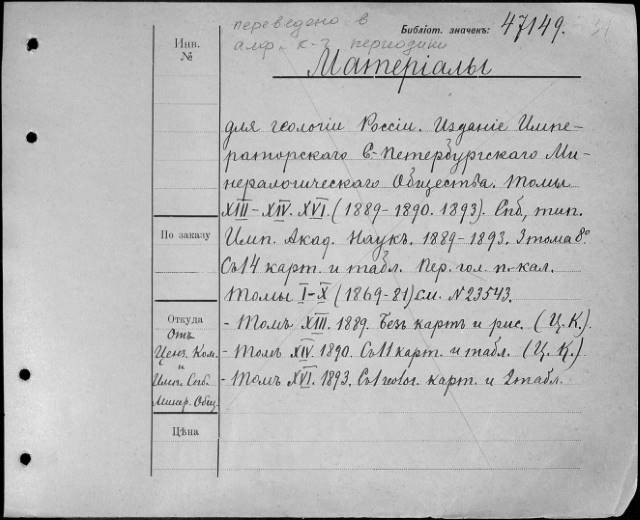 переведено в
алф. к-г периодики
Библіот. значекъ: 47149.
Инв.
№
Матеріалы
для геологіи Россіи. Изданіе Импе-
раторскаго С-Петербургскаго Ми-
нералогическаго Общества. Томы
XIII-XIV. XVI. (1889-1890. 1893). Спб, тип.
По заказу
Имп. Акад. Наукъ. 1889-1893. 3 тома 8°
Съ 14 карт. и табл. Пер. гол. п.-кал.
Томы I-X (1869-81) см. N 23543.
Откуда
Отъ
Ценз. Ком.
и
Имп. Спб.
Минер. Общ.
- Томъ XIII. 1889. Безъ картъ и рис. (Ц.К.).
- Томъ XIV. 1890. Съ 11 карт. и табл. (Ц.К.)
- Томъ XVI. 1893. Съ 1 геолог. карт. и 2 табл.
Цѣна